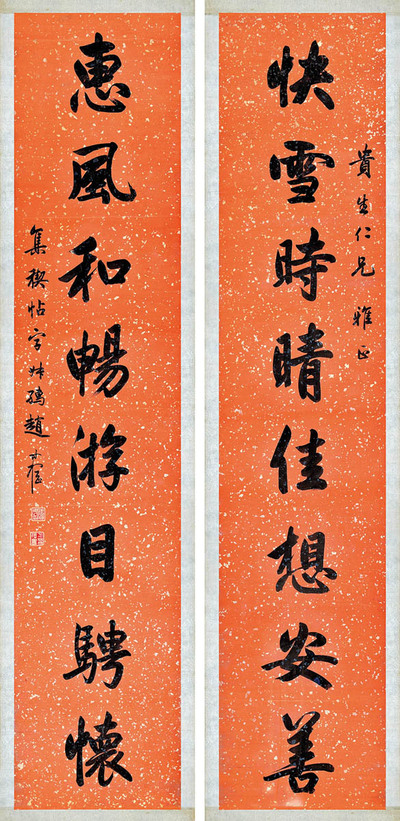 貴生仁兄 雅正
快雪時晴佳想安善
惠風和暢游目騁懷
集禊帖字 趙